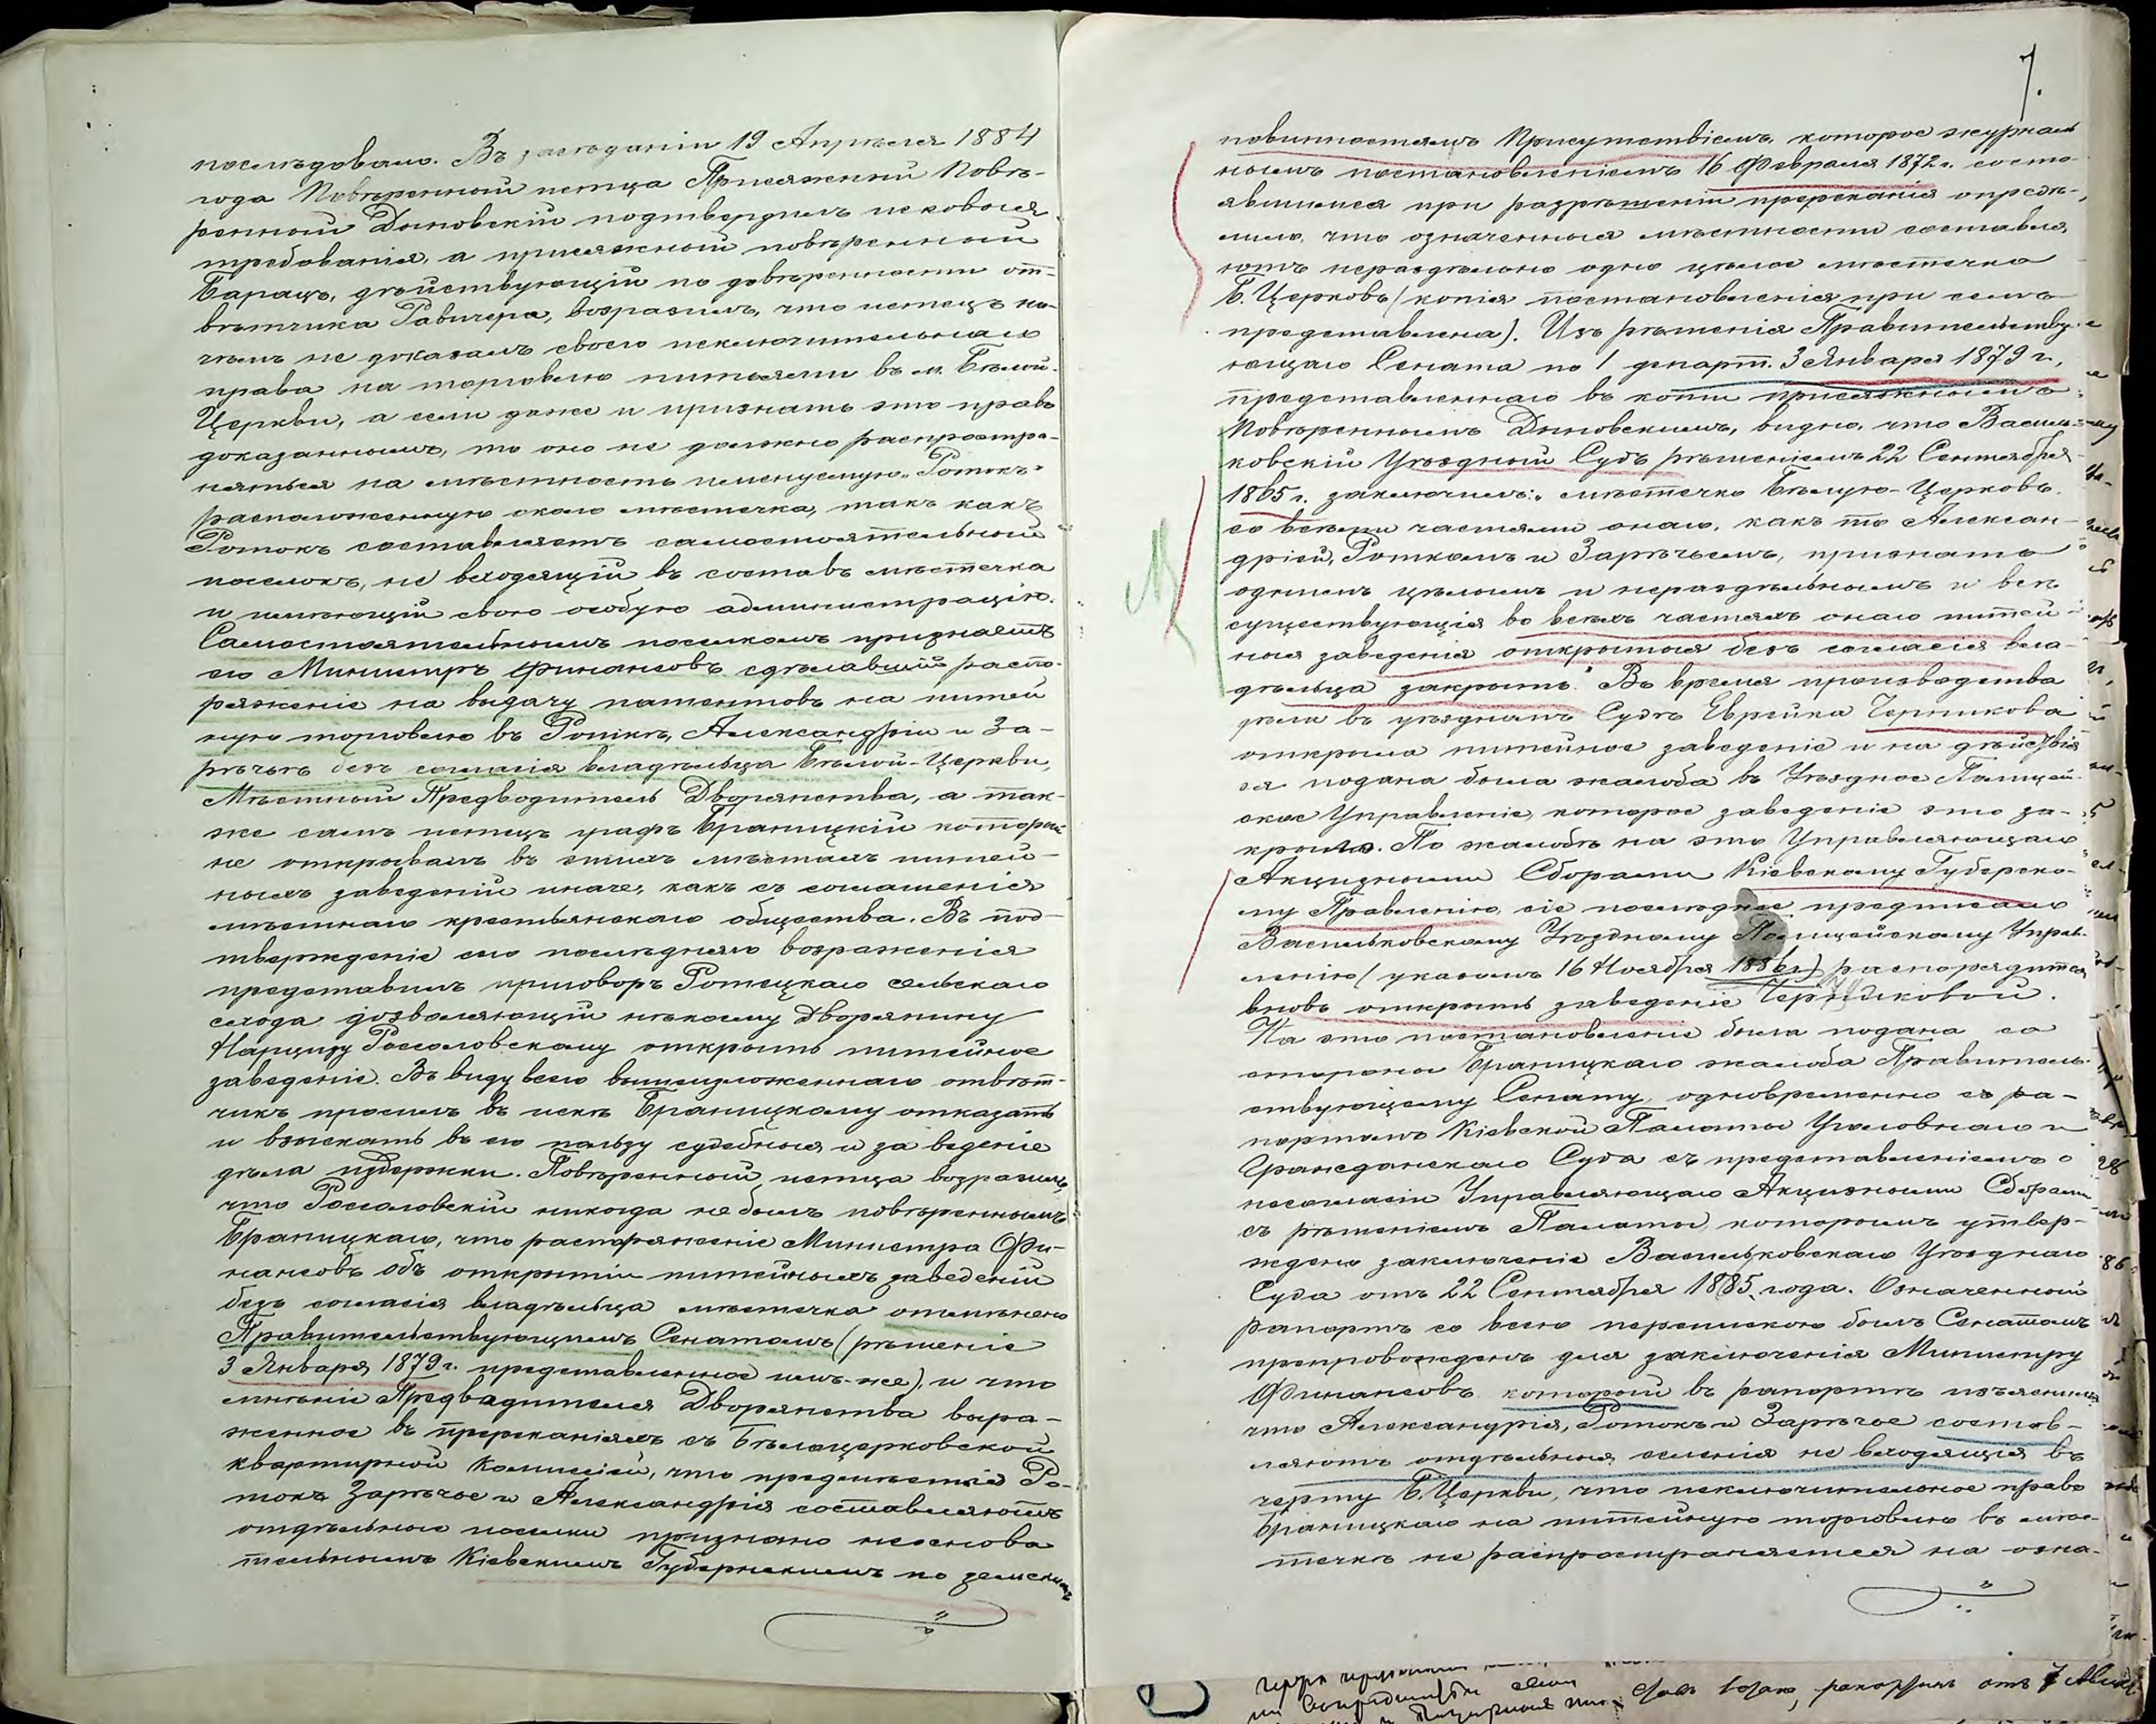 послѣдовало. Въ засѣданіи 19 Апрѣля 1884
года Повѣренный истца Присяжный Повѣ-
ренный Дыновскій подтвердилъ исковыя
требованія, а присяжный повѣренный
Барацъ, дѣйствующій по довѣренности от-
вѣтчика Равичера, возразилъ, что истецъ ни-
чѣмъ не доказалъ своего исключительнаго
права на торговлю питьями въ м. Бѣлой-
Церкви, а если даже и признать это право
доказаннымъ, то оно не должно распростра-
няться на мѣстность именуемую „Ротокъ"
расположенную около мѣстечка, такъ какъ
Ротокъ составляетъ самостоятельный
поселокъ, не входящій въ составъ мѣстечка
и имѣющій свою особую администрацію.
Самостоятельнымъ поселкомъ признаетъ
его Министръ Финансовъ сдѣлавшій распо-
ряженіе на выдачу патентовъ на питей
ную торговлю въ Роткѣ, Александріи и За-
рѣчьѣ безъ согласія владѣльца Бѣлой-Церкви,
Мѣстный Предводитель Дворянства, а так-
же самъ истецъ графъ Браницкій который
не открывалъ въ этихъ мѣстахъ питей-
ныхъ заведеній иначе, какъ съ соглашенія
мѣстнаго крестьянскаго общества. Въ под-
твержденіе сего послѣдняго возраженія
представилъ приговоръ Ротецкаго сельскаго
схода дозволяющій нѣкоему Дворянину
Нарцизу Россоловскому открыть питейное
заведеніе. Въ виду всего вышеизложеннаго отвѣт-
чикъ просилъ въ искѣ Браницкому отказать
и взыскать въ его пользу судебныя и за веденіе
дѣла издержки. Повѣренный истца возразилъ,
что Россоловскій никогда не былъ повѣреннымъ
Браницкаго, что распоряженіе Министра Фи-
нансовъ объ открытіи питейныхъ заведеній
безъ согласія владѣльца мѣстечка отмѣнено
Правительствующимъ Сенатомъ (рѣшеніе
3 Января 1879 г. представленное имъ-же), и что
мнѣніе Предводителя Дворянства выра-
женное въ пререканіяхъ съ Бѣлоцерковской
квартирной Комиссіей, что предмѣстія Ро-
токъ Зарѣчье и Александрія составляютъ
отдѣльные поселки признано неоснова
тельнымъ Кіевскимъ Губернскимъ по земскимъ
7.
повинностямъ Присутствіемъ, которое журналь
нымъ постановленіемъ 16 Февраля 1872 г. состо-
явшимся при разрѣшеніи пререканія опредѣ-
лило, что означенныя мѣстности составля
ютъ нераздѣльно одно цѣлое мѣстечка
Б. Церковь (копія постановленія при семъ
представлена). Изъ рѣшенія Правительству
ющаго Сената по 1 департ. 3 Января 1879 г.,
представленнаго въ копіи присяжнымъ
Повѣреннымъ Дыновскимъ, видно, что Василь-
ковскій Уѣздный Судъ рѣшеніемъ 22 Сентября
1865 г. заключилъ: „мѣстечко Бѣлую-Церковь
со всѣми частями онаго, какъ то Алексан-
дріей, Роткомъ и Зарѣчьемъ, признать
однимъ цѣлымъ и нераздѣльнымъ и всѣ
существующія во всѣхъ частяхъ онаго питей-
ныя заведенія открытыя безъ согласія вла-
дѣльца закрыть." Въ время производства
дѣла въ уѣздномъ Судѣ Еврейка Черникова
открыла питейное заведеніе и на дѣйствія
ея подана была жалоба въ Уѣздное Полицей-
ское Управленіе, которое заведеніе это за-
крыло. По жалобѣ на это Управляющаго
Акцизными Сборами Кіевскому Губернско-
му Правленію, сіе послѣднее предписало
Васильковскому Уѣздному Полицейскому Управ-
ленію (указомъ 16 Ноября распорядиться
вновь открыть заведеніе Черниковой.
На это постановленіе была подана со
стороны Браницкаго жалоба Правитель-
ствующему Сенату, одновременно съ ра-
портомъ Кіевской Палаты Уголовнаго и
Гражданскаго Суда съ представленіемъ о
несогласіи Управляющаго Акцизными Сборами
съ рѣшеніемъ Палаты которымъ утвер-
ждено заключеніе Васильковскаго Уѣзднаго
Суда отъ 22 Сентября 1885 года. Означенный
рапортъ со всею перепискою былъ Сенатомъ
препровожденъ для заключенія Министру
Финансовъ который въ рапортѣ изъяснилъ
что Александрія, Ротокъ и Зарѣчье состав-
ляютъ отдѣльныя селенія не входящія въ
черту Б. Церкви, что исключительное право
Браницкаго на питейную торговлю въ мѣс-
течкѣ не распространяется на озна-